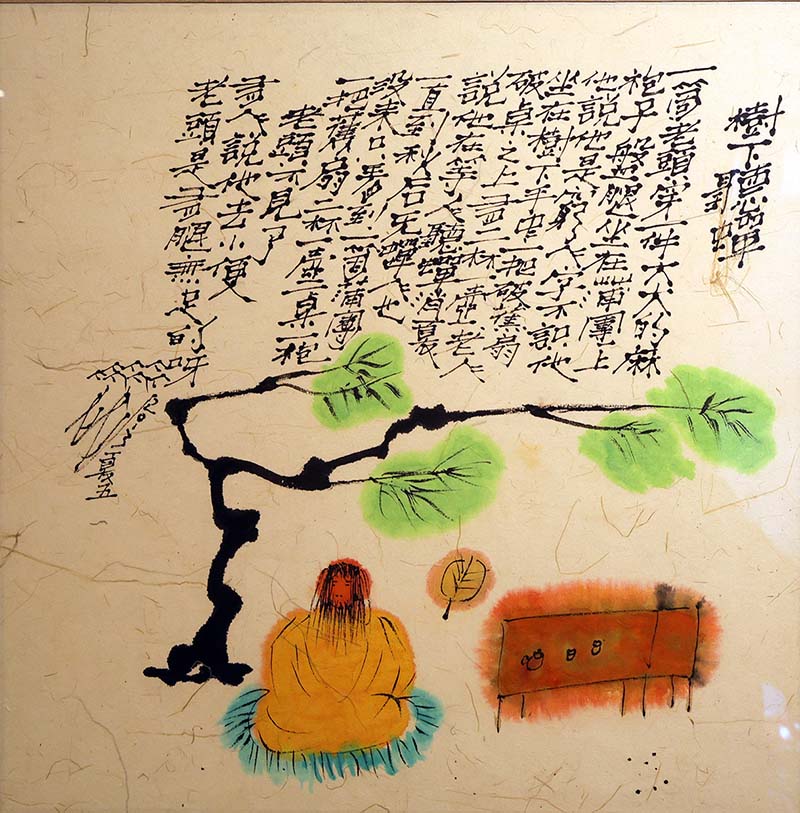 樹下聽蟬
一箇老頭穿一件大大的麻
袍子盤腿坐在蒲團上
他說他是窮人字不識他
坐在樹下手中一把破蕉扇
破桌之上有二杯一壺老人
說他在等人聽蟬消夏
一直到秋后无蟬人也
沒來只看到一箇蒲團
一把扇二杯一壺一桌一袍
老頭不見了
有人說他去小便
老頭是有腿無足的呀
夏五